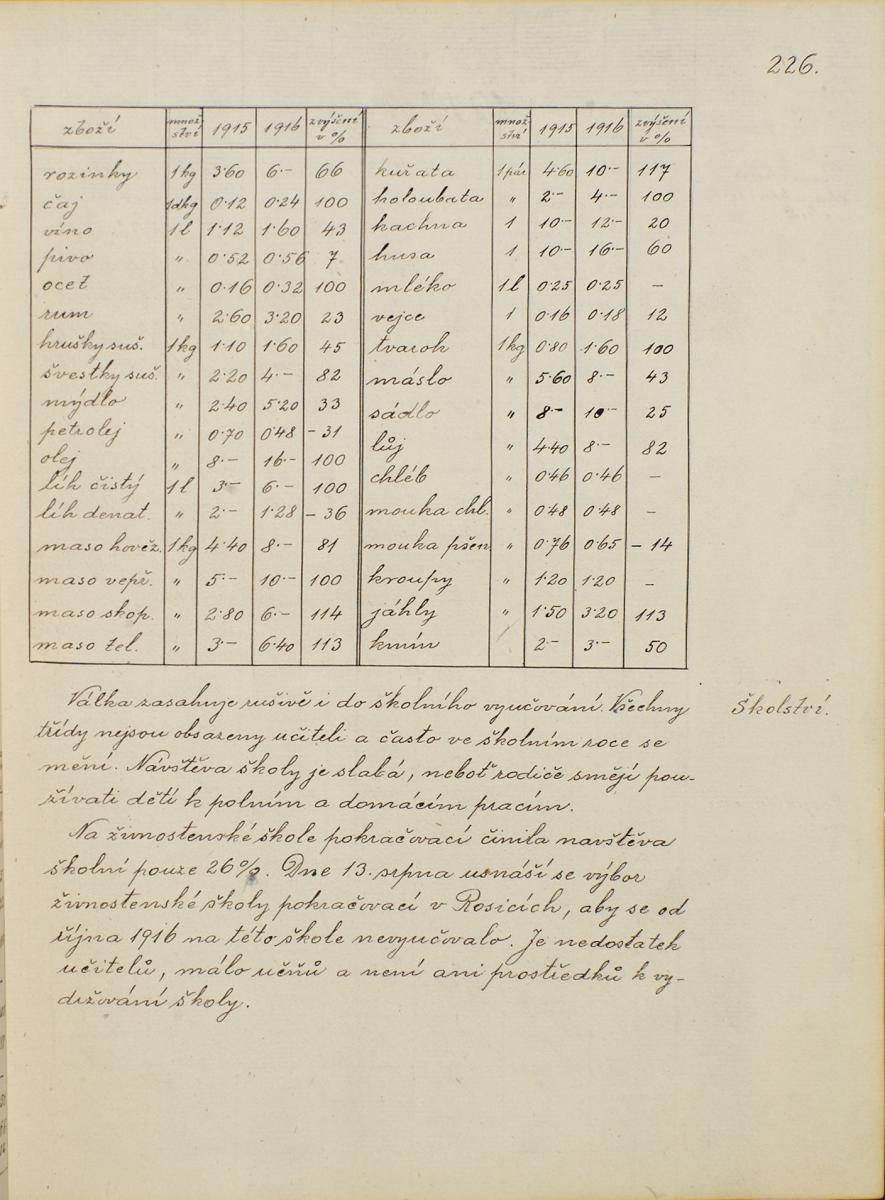 226.
zboží množství 1915 1916 zvýšení v % zboží množství 1915 1916 zvýšení v %
rozinky 1 kg 3·60 6·– 66 kuřata 1 pár 4·60 10·– 117
čaj 1 dkg 0·12 0·24 100 holoubata " 2·– 4·– 100
víno 1 l 1·12 1·60 43 kachna 1 10·– 12·– 20
pivo " 0·52 0·56 7 husa 1 10·– 16·– 60
ocet " 0·16 0·32 100 mléko 1 l 0·25 0·25 –
rum " 2·60 3·20 23 vejce 1 0·16 0·18 12
hrušky suš. 1 kg 1·10 1·60 45 tvaroh 1 kg 0·80 1·60 100
švestky suš. " 2·20 4·– 82 máslo " 5·60 8·– 43
mýdlo " 2·40 5·20 33 sádlo " 8·– 10·– 25
petrolej " 0·70 0·48 – 31 lůj " 4·40 8·– 82
olej " 8·– 16·– 100 chléb " 0·46 0·46 –
líh čistý 1 l 3·– 6·– 100 mouka chl. " 0·48 0·48 –
líh denat. " 2·– 1·28 – 36 mouka pšen. " 0·76 0·65 – 14
maso hověz. 1 kg 4·40 8·– 81 kroupy " 1·20 1·20 –
maso vepř. " 5·– 10·– 100 jáhly " 1·50 3·20 113
maso skop. " 2·80 6·– 114 kmín 2·– 3·– 50
maso tel. " 3·– 6·40 113
Válka zasahuje rušivě i do školního vyučování. Všechny
třídy nejsou obsazeny učiteli a často ve školním roce se
mění. Návštěva školy je slabá, neboť rodiče smějí pou-
žívati dětí k polním a domácím pracím.
Na živnostenské škole pokračovací činila navštěva
školní pouze 26%. Dne 13. srpna usnáší se výbor
živnostenské školy pokračovací v Rosicích, aby se od
října 1916 na této škole nevyučovalo. Je nedostatek
učitelů, málo učňů a není ani prostředků k vy-
držování školy.
Školství.